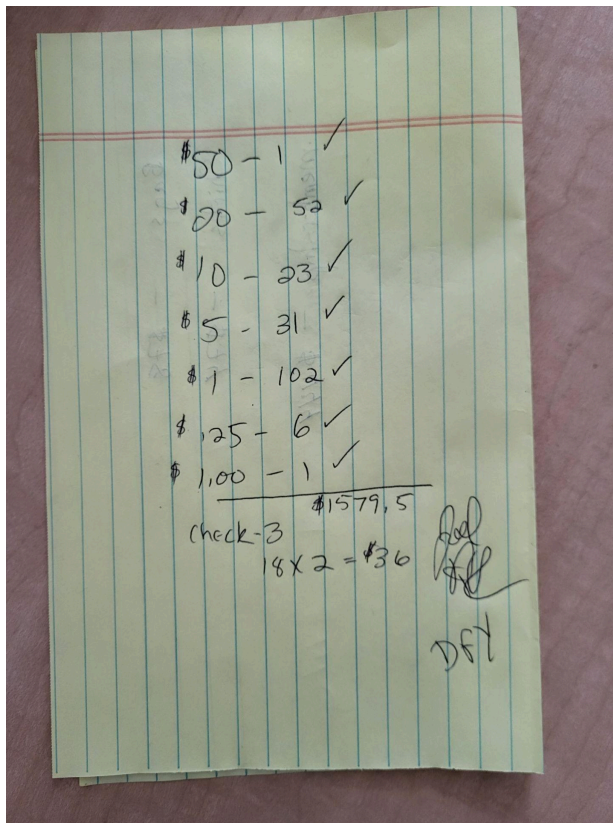 $50 - 1 ✓
$20 - 52 ✓
$10 - 23 ✓
$5 - 31 ✓
$1 - 102 ✓
$.25 - 6 ✓
$1.00 - 1 ✓
$1579.5
check-3
18 x 2 = $36